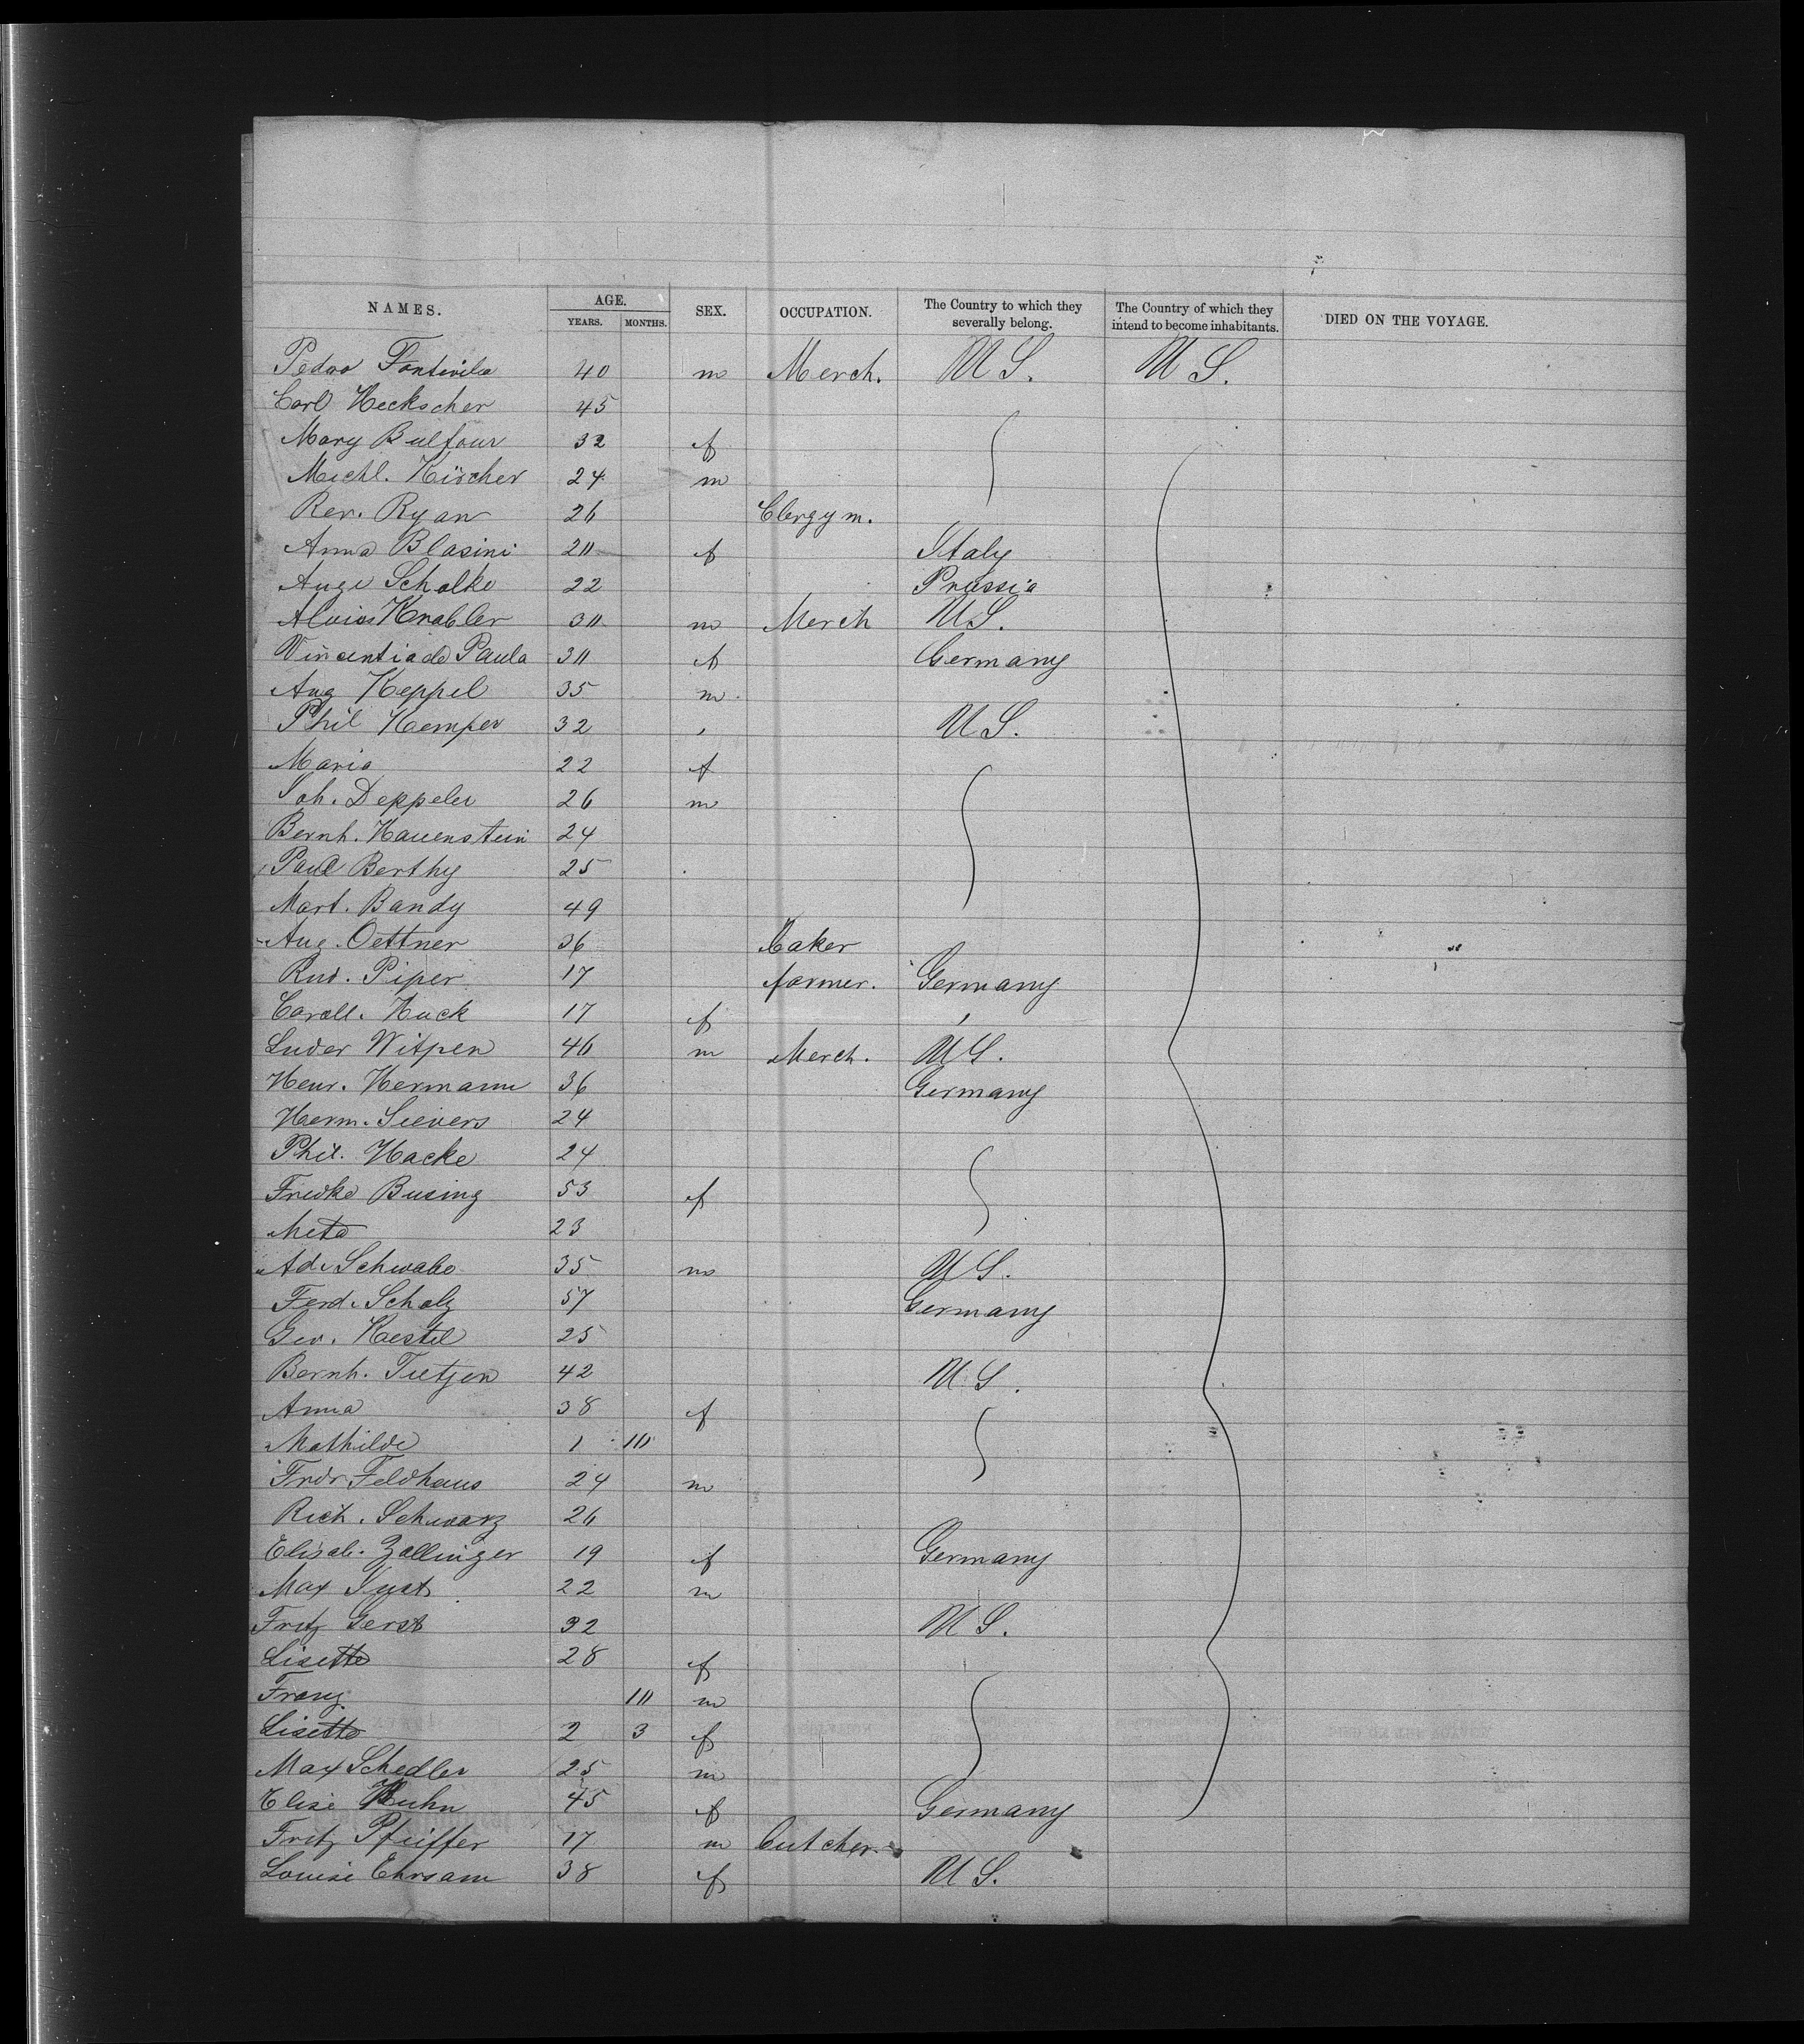 NAMES. AGE. YEARS. MONTHS. SEX. OCCUPATION. The Country to which they severally belong. The Country of which they intend to become inhabitants. DIED ON THE VOYAGE.
Pedro Fontivila 40 m Merch. U S. U S.
Carl Heckscher 45
Mary Balfour 32 f
Michl. Kircher 24 m
Rev. Ryan 26 Clergym.
Anna Blasini 20 f Italy
Auge Schalke 22 Prussia
Alois Knabler 30 m Merch U S.
Vincentia de Paula 30 f Germany
Aug Keppel 35 m
Phil Kemper 32 , U S.
Maria 22 f
Joh. Deppeler 26 m
Bernh. Hauenstein 24
Paul Berthy 25
Mart. Bandy 49
Aug. Oettner 36 baker
Rud. Piper 17 farmer. Germany
Caroll. Huck 17 f ,
Luder Witpen 46 m Merch. U S.
Henr. Hermann 36 Germany
Herm. Sievers 24
Phil. Hacke 24
Fredke Busing 53 f
Meta 23
Ad. Schwabe 35 m U S.
Ferd. Scholz 57 Germany
Geo. Kaestel 25
Bernh. Tietjen 42 U S.
Anna 38 f
Mathilde 1 10
Frdr Feldhaus 24 m
Rich. Schwarz 26
Elisab. Zollinger 19 f Germany
Max Just 22 m
Fritz Gerst 32 U S.
Lisette 28 f
Franz 10 m
Lisette 2 3 f
Max Schedler 25 m
Elise Kuhn 45 f Germany
Fritz Pfeiffer 17 m butcher
Louise Ehrsam 38 f U S.